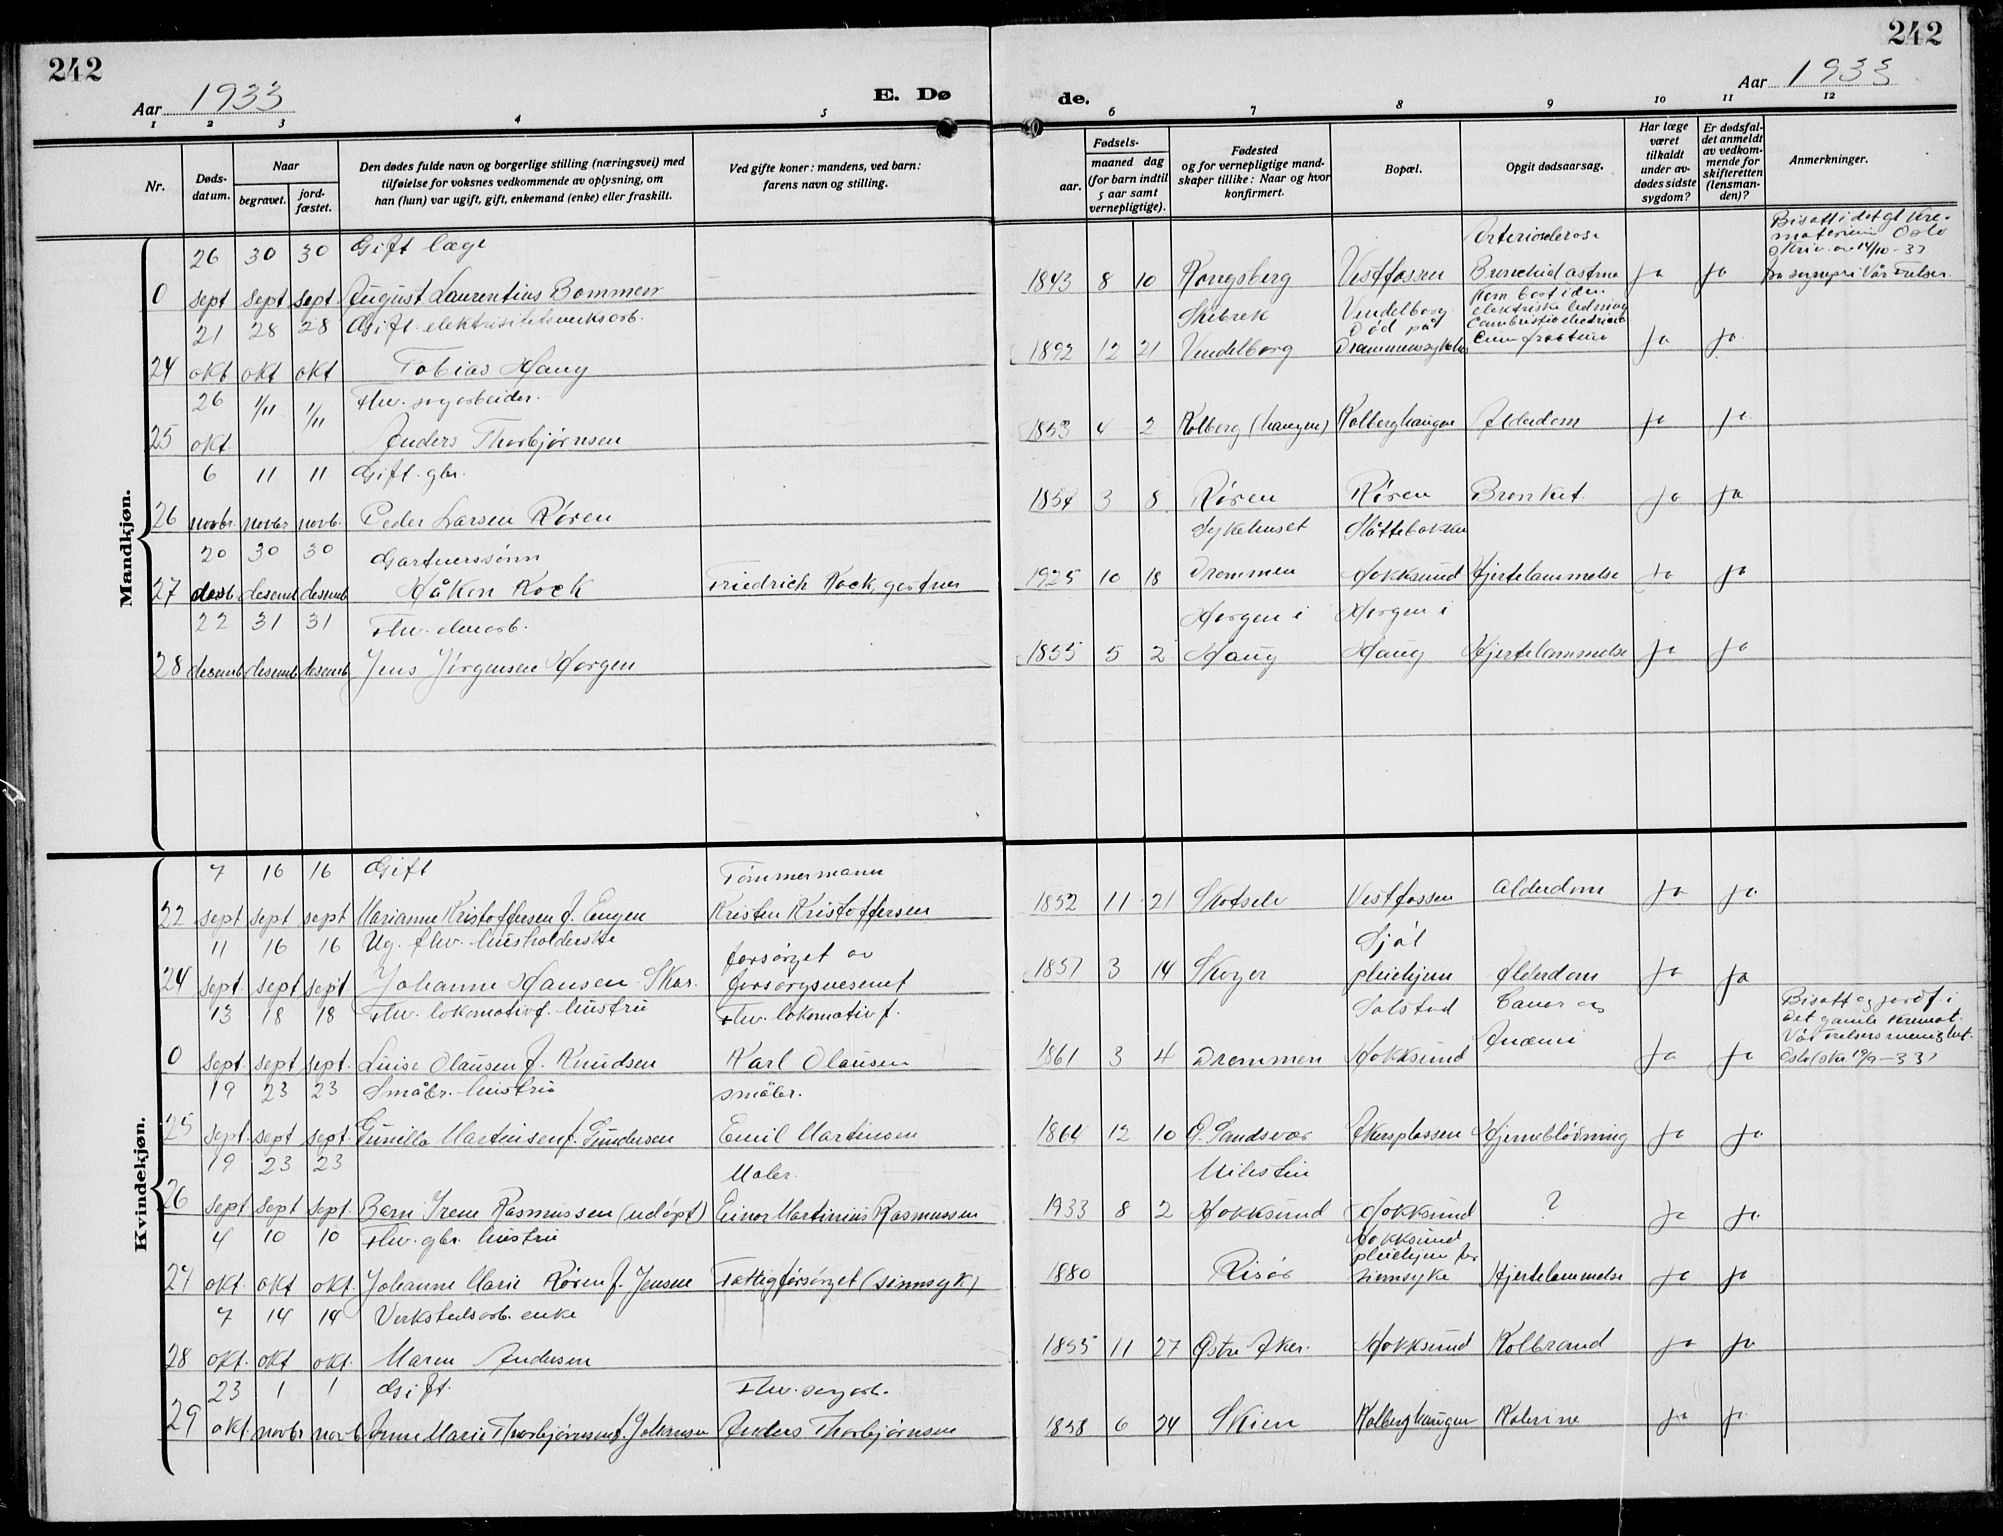 242
242
Aar 1933
E. Dø
de.
Aar 1933
1 2 3 4 5 6 7 8 9 10 11 12
Nr.
Døds-
datum.
Naar
begravet.
jord-
fæstet.
Den dødes fulde navn og borgerlige stilling (næringsvei) med
tilføielse for voksnes vedkommende av oplysning, om
han (hun) var ugift, gift, enkemand (enke) eller fraskilt.
Ved gifte koner: mandens, ved barn:
farens navn og stilling.
Fødsels-
aar.
maaned dag
(for barn indtil
5 aar samt
vernepligtige).
Fødested
og for vernepligtige mand-
skaper tillike: Naar og hvor
konfirmert.
Bopæl.
Opgit dødsaarsag.
Har læge
været
tilkaldt
under av-
dødes sidste
sygdom?
Er dødsfal-
det anmeldt
av vedkom-
mende for
skifteretten
(lensman-
den)?
Anmerkninger.
Mandkjøn.
26 30 30 Gift læge Arteriosclerose Bisatt i det gl. kre-
matorium Oslo
14/10-33
0 sept sept sept. August Laurentius Bommen 1843 8 10 Kongsberg Vestfossen Bronchial astma ja ja Vår Frelser
21 28 28 Gift. elektrisitetsverksarb. Skibrek Vendelborg Kom bort i den
elektriske ledning
Død på Combustio electrica
24 okt okt okt Tobias Haug 1892 12 21 Vendelborg Drammens sykehus ja ja.
26 1/11 1/11 Fhv. sagarbeider.
25 okt. Anders Thorbjørnsen 1853 4 2 Kolberg (haugen) Kolberghaugen Alderdom ja ja.
6 11 11 Gift. gbr.
26 novbr. novbr novb. Peder Larsen Røren 1854 3 8 Røren Røren Bronkit. ja ja
20 30 30 Gartnerssønn Sykehuset Slåttebakken
27 desb. desemb desemb Håkon Kock Friedrich Kock, gartner 1925 10 18 Drammen Hokksund Hjertelammelse ja ja
22 31 31 Fhv. elvearb. Horgen i Horgen i
28 desemb desemb desemb. Jens Jørgensen Horgen 1855 5 2 Haug Haug Hjertelammelse ja ja
Kvindekjøn.
7 16 16 Gift Tømmermann
22 sept sept sept Marianne Kristoffersen f. Engen Kristen Kristoffersen 1852 11 21 Skotselv Vestfossen Alderdom ja ja
11 16 16 Ug. fhv. husholderske forsørget av Sjøl
24 sept. sept sept Johanne Hansen Skar. forsorgsvesenet 1857 3 14 Skoger pleiehjem Alderdom ja ja
13 18 18 Fhv. lokomotivf. hustru Fhv. lokomotivf. Solstad Cancer og Bisatt og jordf. i
Det gamle kremat.
0 sept. sept. sept. Luise Olausen f. Knudsen Karl Olausen 1861 3 4 Drammen Hokksund Anæmi ja ja Vår Frelsers menighet.
Oslo 19/9-33
19 23 23 Småbr. hustru småbr.
25 sept. sept sept. Gunilla Martinsen f. Gundersen Emil Martinsen 1864 12 10 Ø. Sandsvær Åkersplassen Hjerneblødning ja ja.
19 23 23 Maler. Milestein
26 sept sept sept. Barn Irene Rasmussen (udøpt) Einar Martinius Rasmussen 1933 8 2 Hokksund Hokksund ? ja ja.
4 10 10 Fhv. gbr. hustru Hokksund
pleiehjem for
27 okt. okt okt. Johanne Marie Røren f. Jensen Fattigforsørget (sinnsyk) 1880 Risør sinnsyke Hjertelammelse ja ja
7 14 14 Verkstedsarb. enke
28 okt. okt okt. Maren Andersen 1855 11 27 Østre Aker. Hokksund Kolbrand ja ja
23 1 1 Gift. Fhv. sagarb.
29 okt. novbr novb Anne Marie Thorbjørnsen f. Johansen Anders Thorbjørnsen 1858 6 24 Skien Kolberghaugen ja ja.